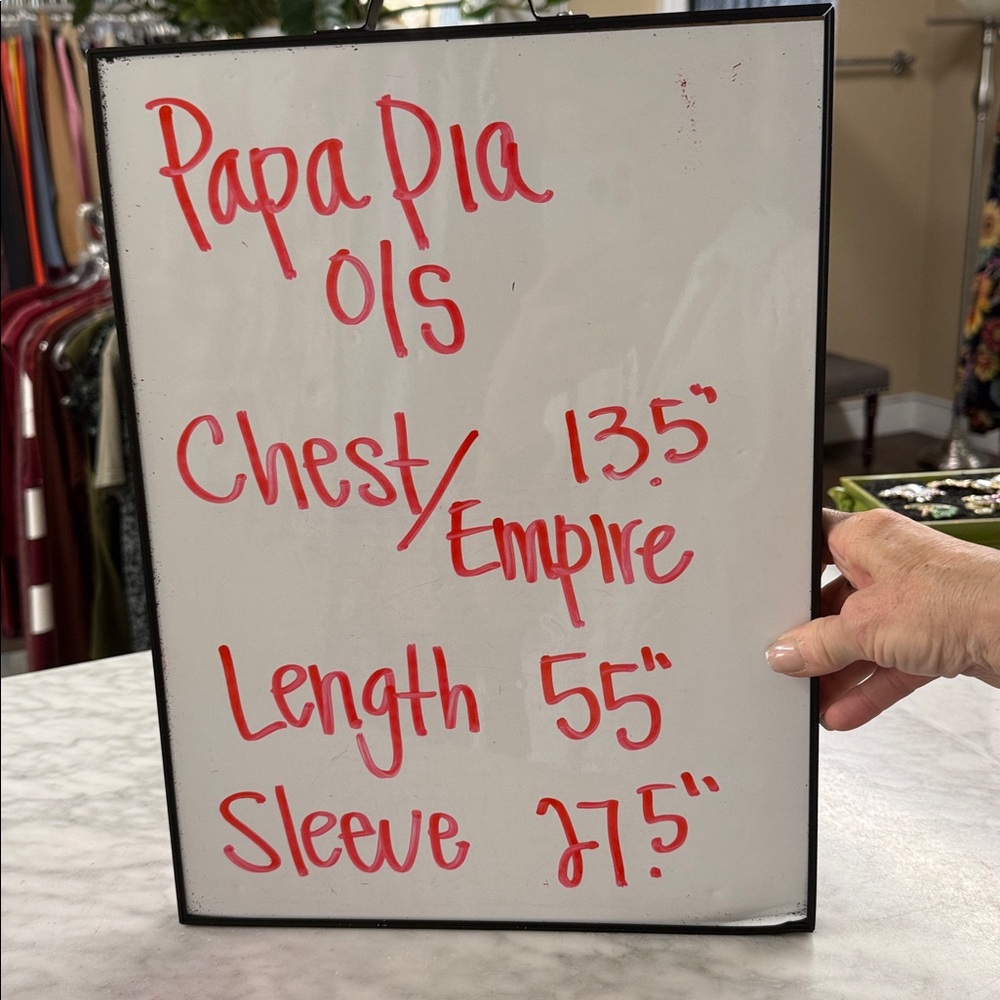 Papa Dia
O/S
Chest/ 13.5"
Empire
Length 55"
Sleeve 27.5"